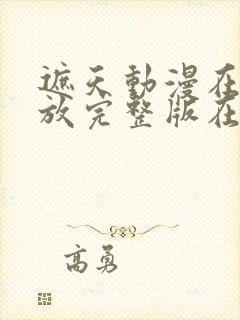 遮天動漫在
放完整版在
高勇